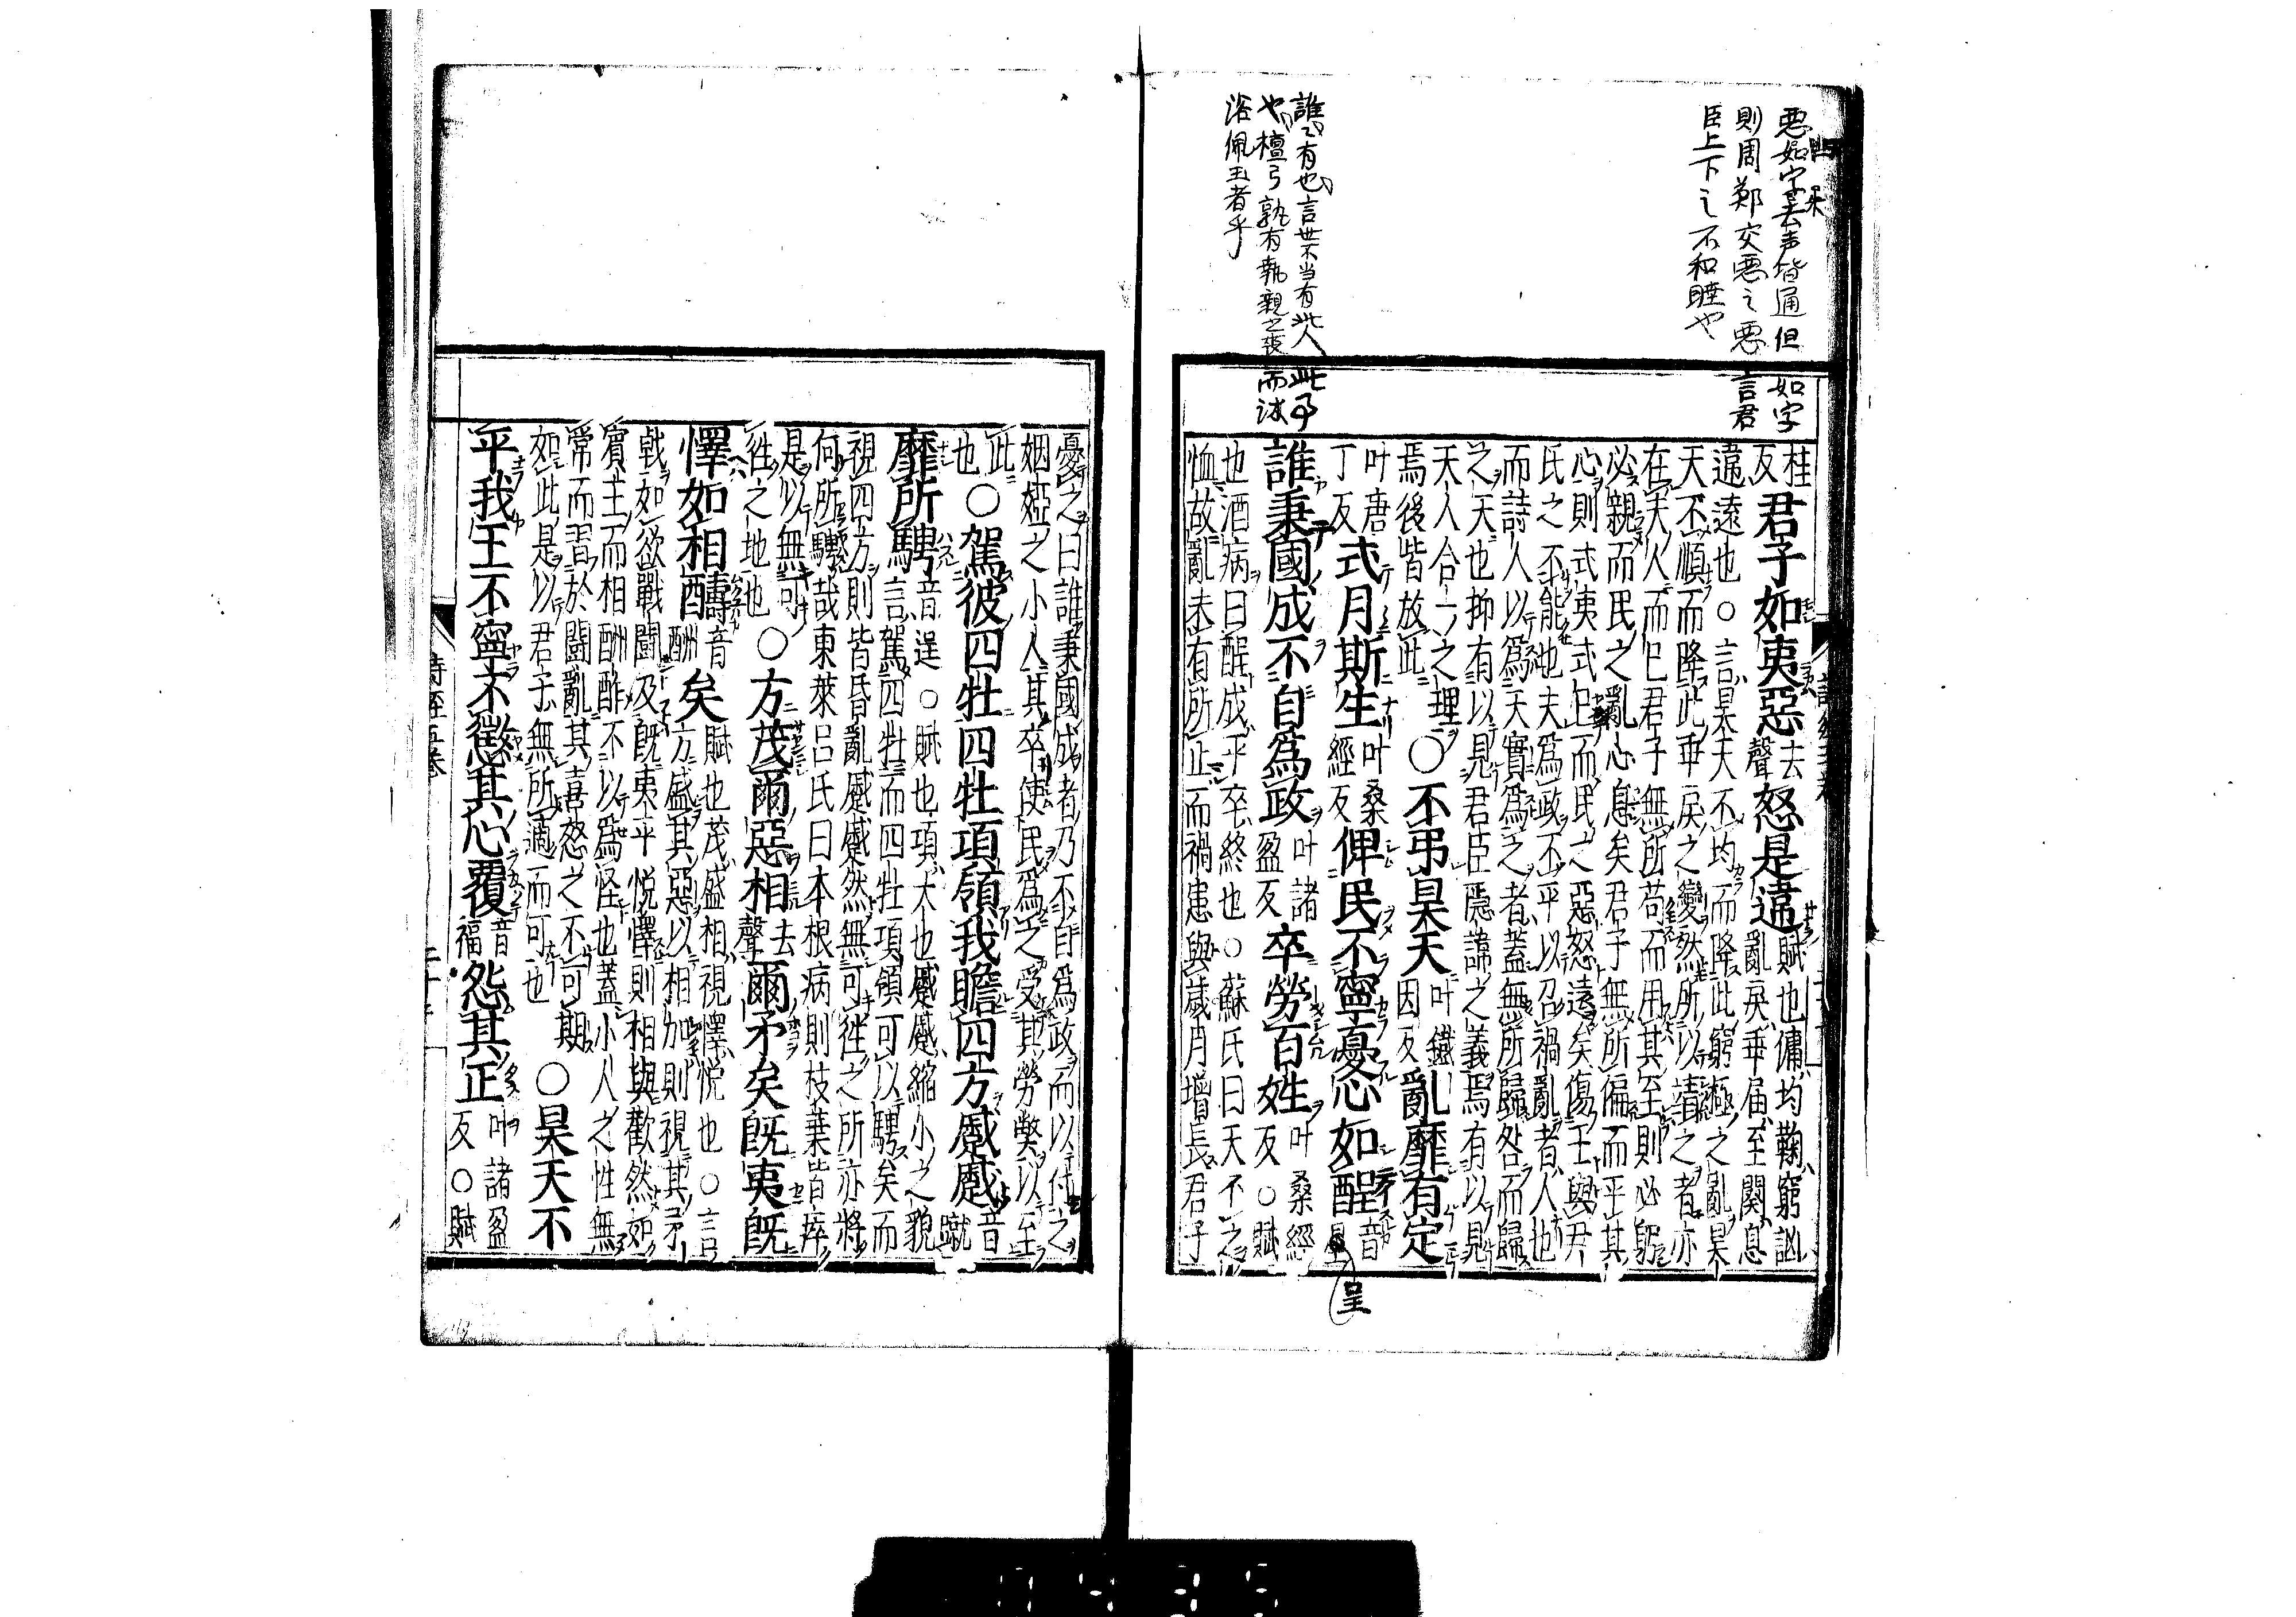 悪如字去声皆通但如字
則周鄭交悪之悪言君
臣上下之不和睦也
誰有也言世不当有此人此事
也檀弓孰有執親之喪而沐
浴佩玉者乎
桂反君子如夷惡去聲怒是違賦也傭均鞠窮訩
亂戾乖届至闋息
違遠也○言昊天不均而降此窮極之亂昊
天不順而降此乖戾之變然所以靖之者亦
在夫人而已君子無所苟而用其至則必躬
必親而民之亂心息矣君子無所偏而平其
心則式夷式已而民之惡怒遠矣傷王與尹
氏之不能也夫為政不平以召禍亂者人也
而詩人以為天實為之者蓋無所歸咎而歸
之天也抑有以見君臣隱諱之義焉有以見
天人合一之理○不弔昊天叶鐵因反亂靡有定
焉後皆放此
叶唐丁反式月斯生叶桑經反俾民不寧憂心如酲音呈
誰秉國成不自為政叶諸盈反卒勞百姓叶桑經反○賦
也酒病曰酲成平卒終也○蘇氏曰天不之
恤故亂未有所止而禍患與歲月增長君子
憂之曰誰秉國成者乃不自為政而以付之
姻婭之小人其卒使民為之受其勞弊以至
此也○駕彼四牡四牡項領我瞻四方蹙蹙音蹴
靡所騁音逞○賦也項大也蹙蹙縮小之貌
言駕四牡而四牡項領可以騁矣而
視四方則皆昏亂蹙蹙然無可往之所亦將
何所騁哉東萊呂氏曰本根病則枝葉皆瘁
是以無可往之地也○方茂爾惡相去聲爾矛矣既夷既
懌如相醻音酬矣賦也茂盛相視懌悅也○言
方盛其惡以相加則視其矛
戟如欲戰鬬及既夷平悅懌則相與歡然如
賓主而相酬酢不以為怪也蓋小人之性無
常而習於鬬亂其喜怒之不可期
如此是以君子無所適而可也○昊天不
平我王不寧不懲其心覆音福怨其正叶諸盈反○賦
詩經五卷